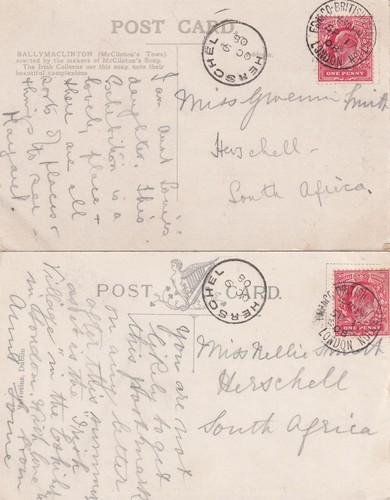 POST CARD
BALLYMACLINTON (McClinton's Town)
erected by the makers of McClinton's Soap.
The Irish Colleens use this soap, note their
beautiful complexions.
HERSCHEL
OC 9
08
FRANCO-BRITISH
LONDON
ONE PENNY
I am Aunt Louis'
daughter. This
Exhibition is a
lovely place &
there are all
sorts of places &
things to see -
Margaret.
Miss Gwennie Smith
Herschell -
South Africa.
POST CARD
HERSCHEL
OC 9
08
LONDON
ONE PENNY
Dublin
You are not
likely to get
this Post mark
on any better
after this summer
as it is the Irish
Village in the Exhibition
in London. With love from
Aunt
Miss Nellie Smith
Herschell
South Africa